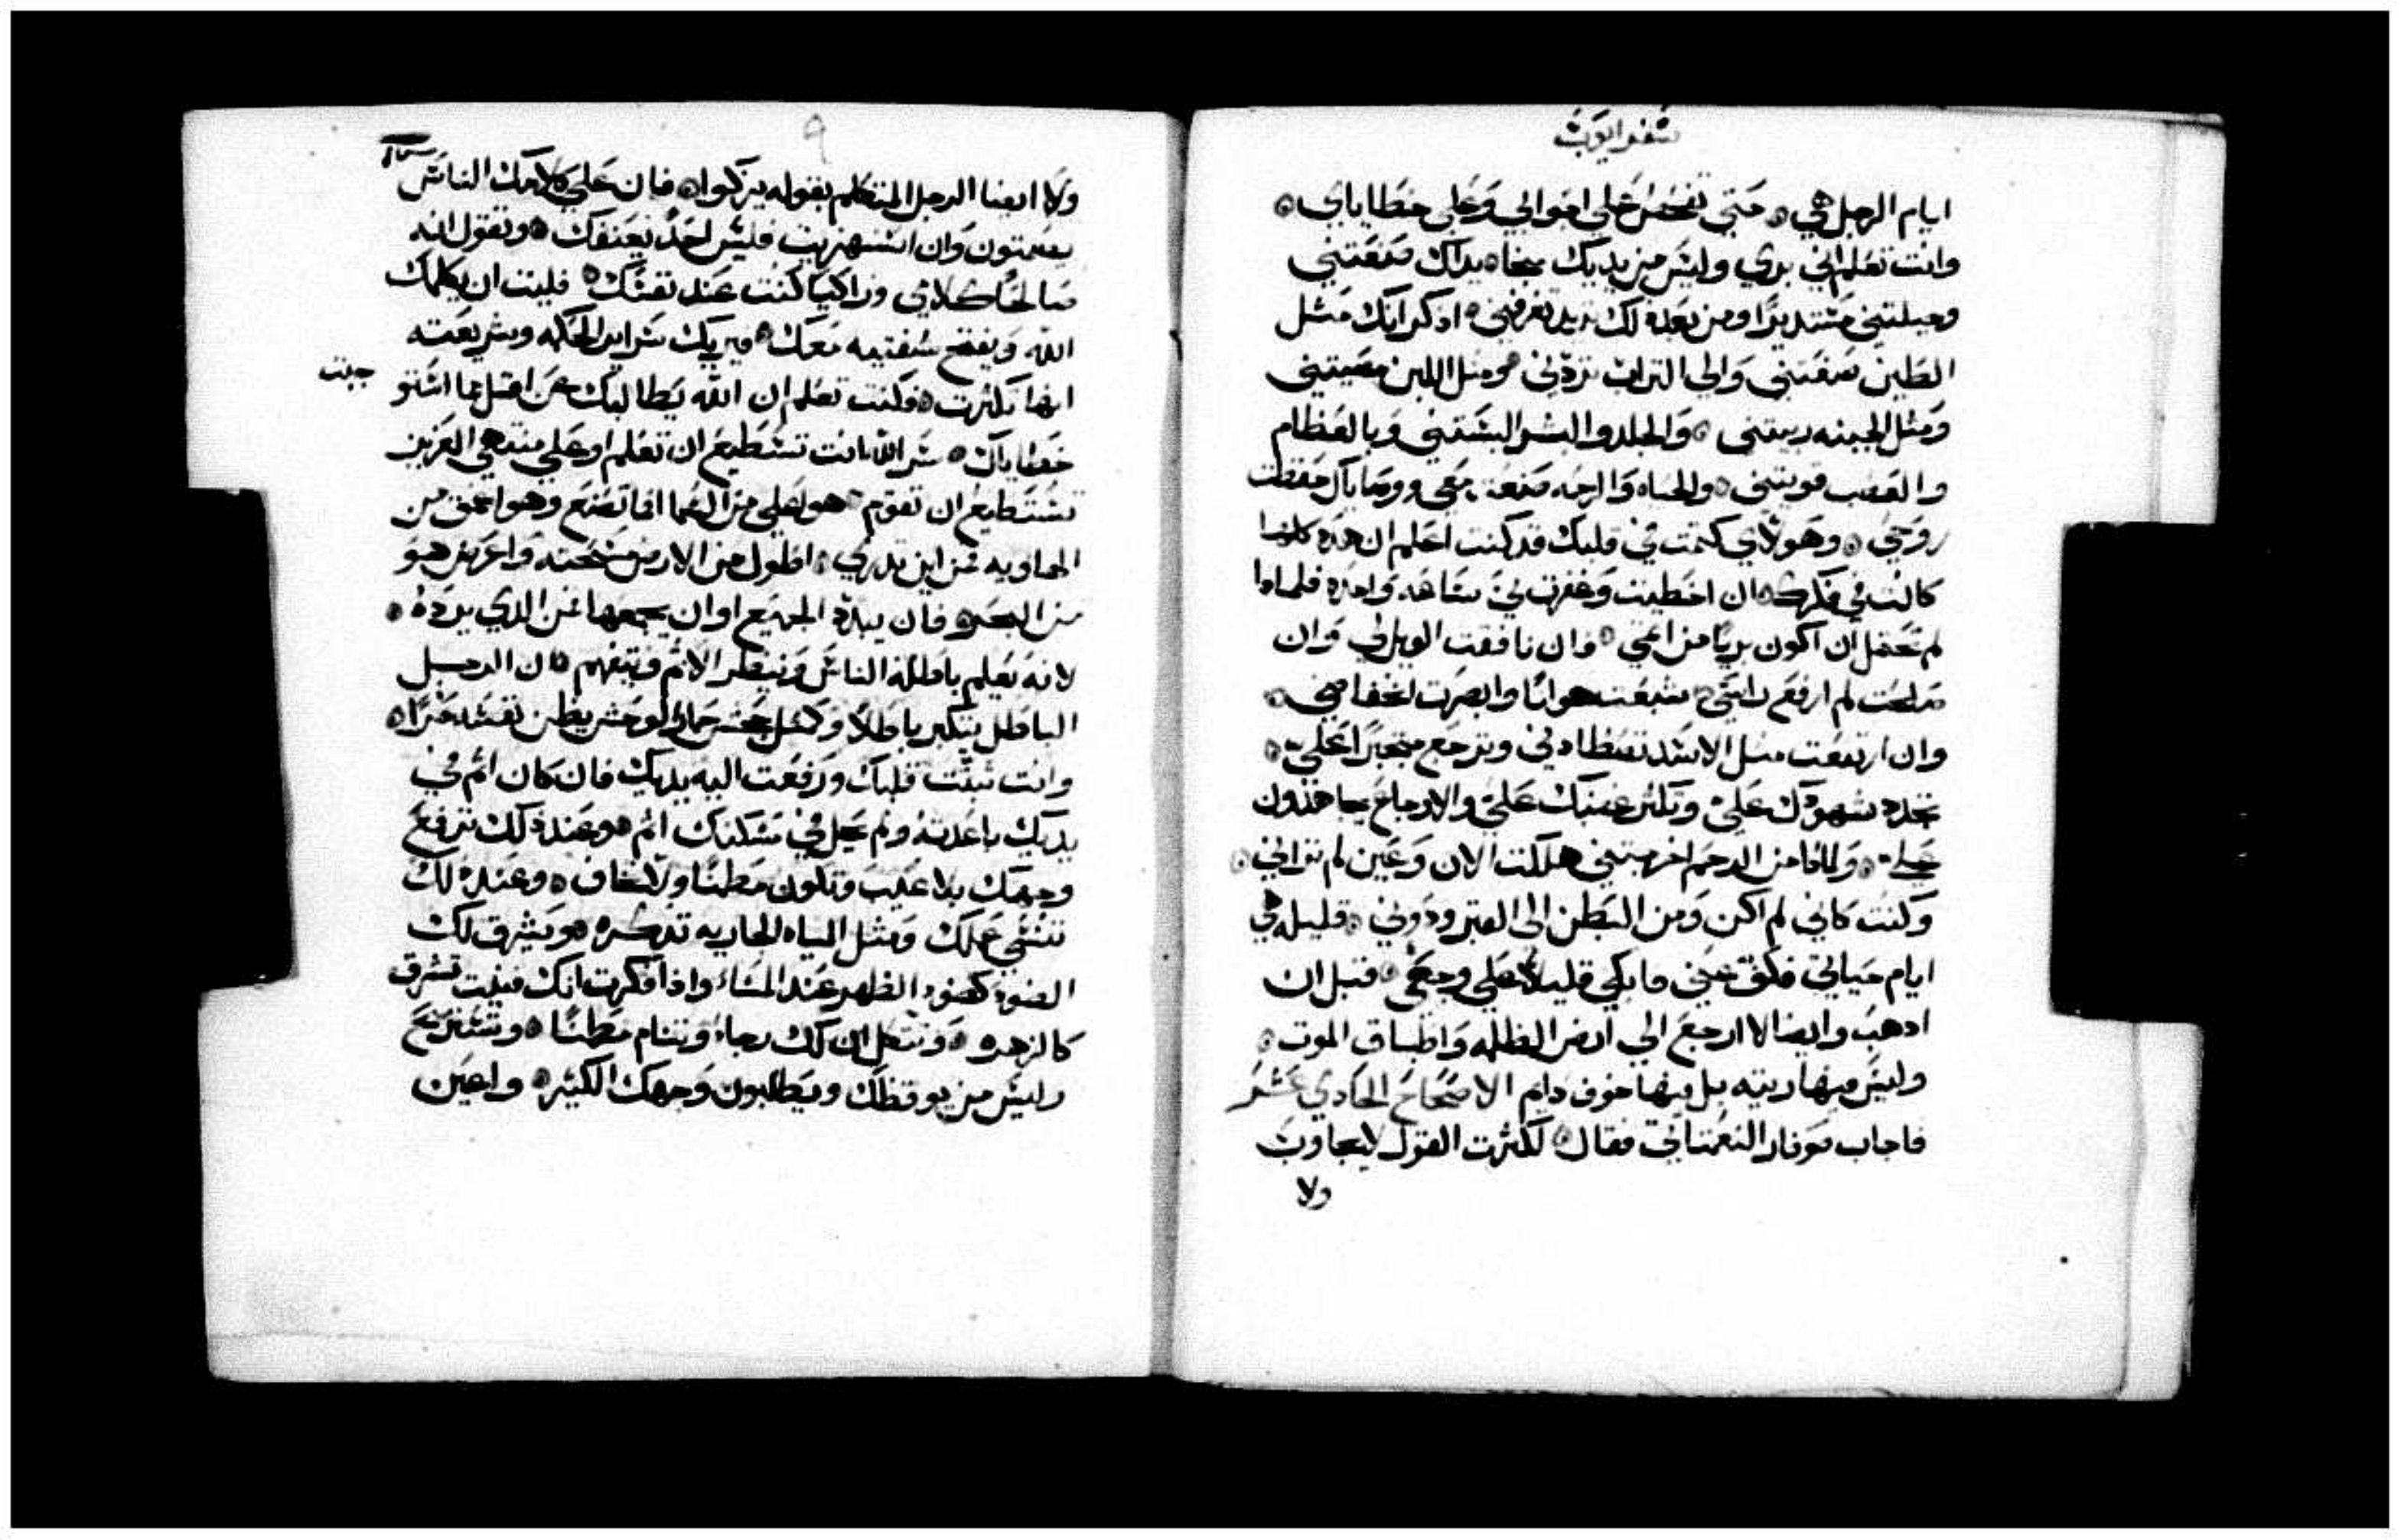 سفر ايوب
ايام الرجل هي ۞ حتي تفحص علي اغوالي وعلي خطاياي ۞
وانت تعلم اني بري وليس من يديك ينجا ۞ يداك صنعتني
وجبلتني مستديرا ومن بعد ذلك تريد تغرقني ۞ اذكر انك مثل
الطين صنعتني والي التراب تردني ۞ ومثل اللبن مصيتني
ومثل الجبنه ربيتني ۞ والجلد والبشر البستني وبالعظام
والعصب قويتني ۞ والحياه والرحمه صنعت معي ووصاياك حفظت
روحي ۞ وهولاي كتمت في قلبك قد كنت اعلم ان هذه كلها
كانت في فكرك ۞ ان اخطيت وغفرت لي ساعه واحده فلماذا
لم تجعل ان اكون بريا من اثمي ۞ وان نافقت الويل لي وان
صلحت لم ارفع راسي ۞ شبعت هوانا وابصرت انخفاضي ۞
وان ارتفعت مثل الاسد تصطادني وترجع متجبرا علي ۞
تجدد شهودك علي وتكثر غضبك علي والاوجاع يجاهدون
علي ۞ ولماذا من الرحم اخرجتني هلكت الان وعين لم تراني ۞
وكنت كاني لم اكن ومن البطن الي القبر ودوني ۞ قليله هي
ايام حياتي فكف عني فابكي قليلا علي وجعي ۞ قبل ان
اذهب وايضا لا ارجع الي ارض الظلمه واطباق الموت ۞
وليس فيها ريته بل فيها خوف دايم الاصحاح الحادي عشر
فاجاب صوفار النعماتي فقال ۞ لكثرت القول لا يجاوب
ولا
٩
ولا ايضا الرجل المتكلم بقوله يزكوا ۞ فان علي كلامك الناس
يصمتون وان استهزيت فليس احد يعنفك ۞ وتقول انه
صالحا كلامي وزاكيا كنت عند نفسك ۞ فليت ان يكلمك
الله ويفتح شفتيه معك ۞ فيريك سراير الحكمه وشريعته
انها تكثرت ۞ وكنت تعلم ان الله يطالبك عن اقل مما استوجبت
خطاياك ۞ سر الله انت تستطيع ان تعلم او علي منتهي العزيز
تستطيع ان تقوم ۞ هو اعلي من السما فما تصنع وهو اعمق من
الهاويه فمن اين تدري ۞ اطول من الارض مسحته واعرض هو
من البحر ۞ فان يبدد الجميع او ان يجمعها فمن الذي يرده ۞
لانه يعلم باطله الناس وينظر الاثم ويتفهم ۞ ان الرجل
الباطل يتكبر باطلا وكمثل جحش حمار الوحش يظن نفسه حرا ۞
وانت ثبتت قلبك ورفعت اليه يديك فان كان اثم في
يديك باعدته ولم يحل في مسكنك اثم ۞ وعند ذلك ترفع
وجهك بلا عيب وتكون مطمنا ولا تخاف ۞ وعند ذلك
تنسي عملك ومثل المياه الجاريه تذكره ۞ ويشرق لك
الضو كضو الظهر عند المسا واذا افكرت انك فنيت تشرق
كالزهره ۞ وتتكل ان لك رجاء وتنام مطمنا ۞ وتستريح
وليس من يوقظك ويطلبون وجهك الكثيره ۞ واعين